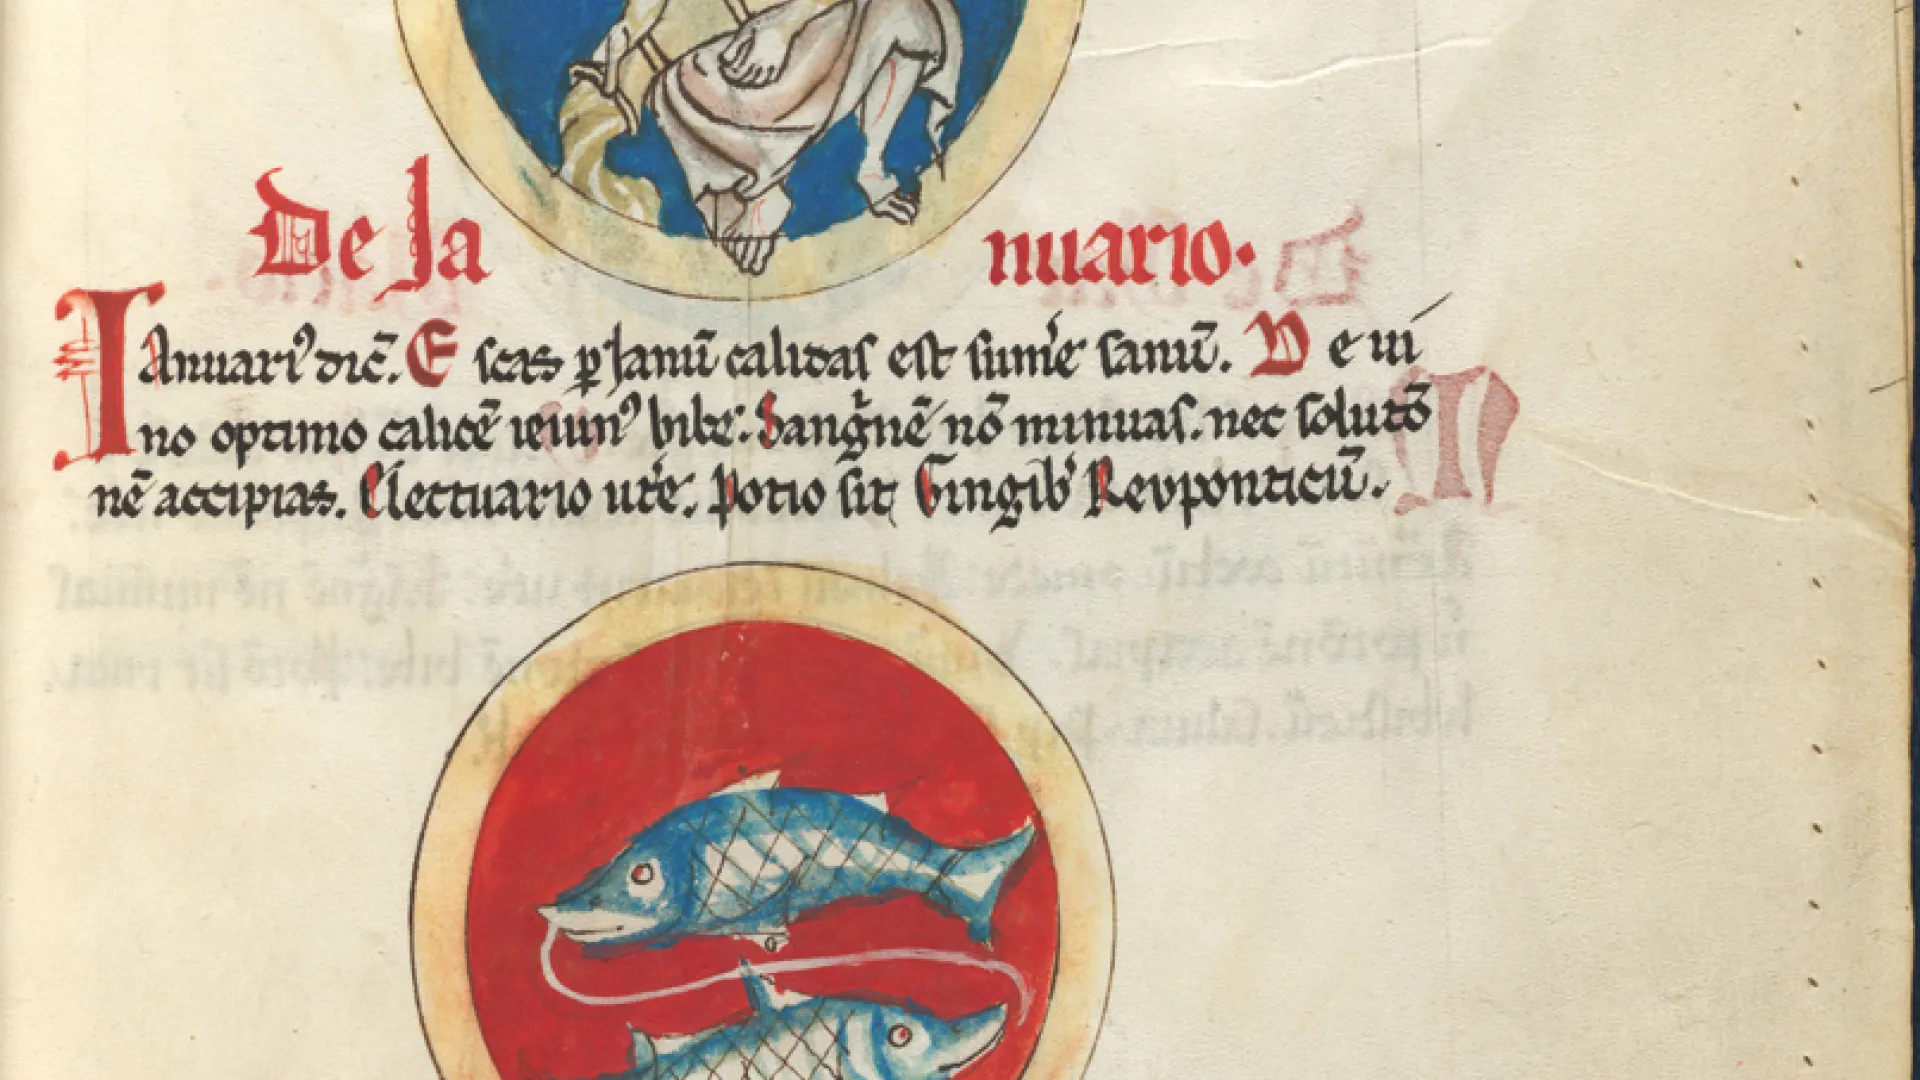 De Ja nuario.
Ianuari⁹ dic̄. Escas ꝑ Janū calidas est sum̄e sanū. De ui
no optimo calicē ieiun⁹ bibe. Sangͥnē nō minuas. nec solutō
nē accipias. Electuario ut̄e. Potio sit Gingib̄ Reuponticū.